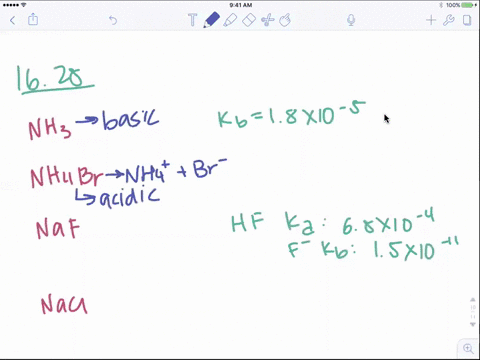 9:41 AM
100%
16.28
NH3 → basic
Kb = 1.8 × 10^-5
NH4Br → NH4+ + Br-
↳ acidic
NaF
HF Ka : 6.8 × 10^-4
F- Kb : 1.5 × 10^-11
NaCl